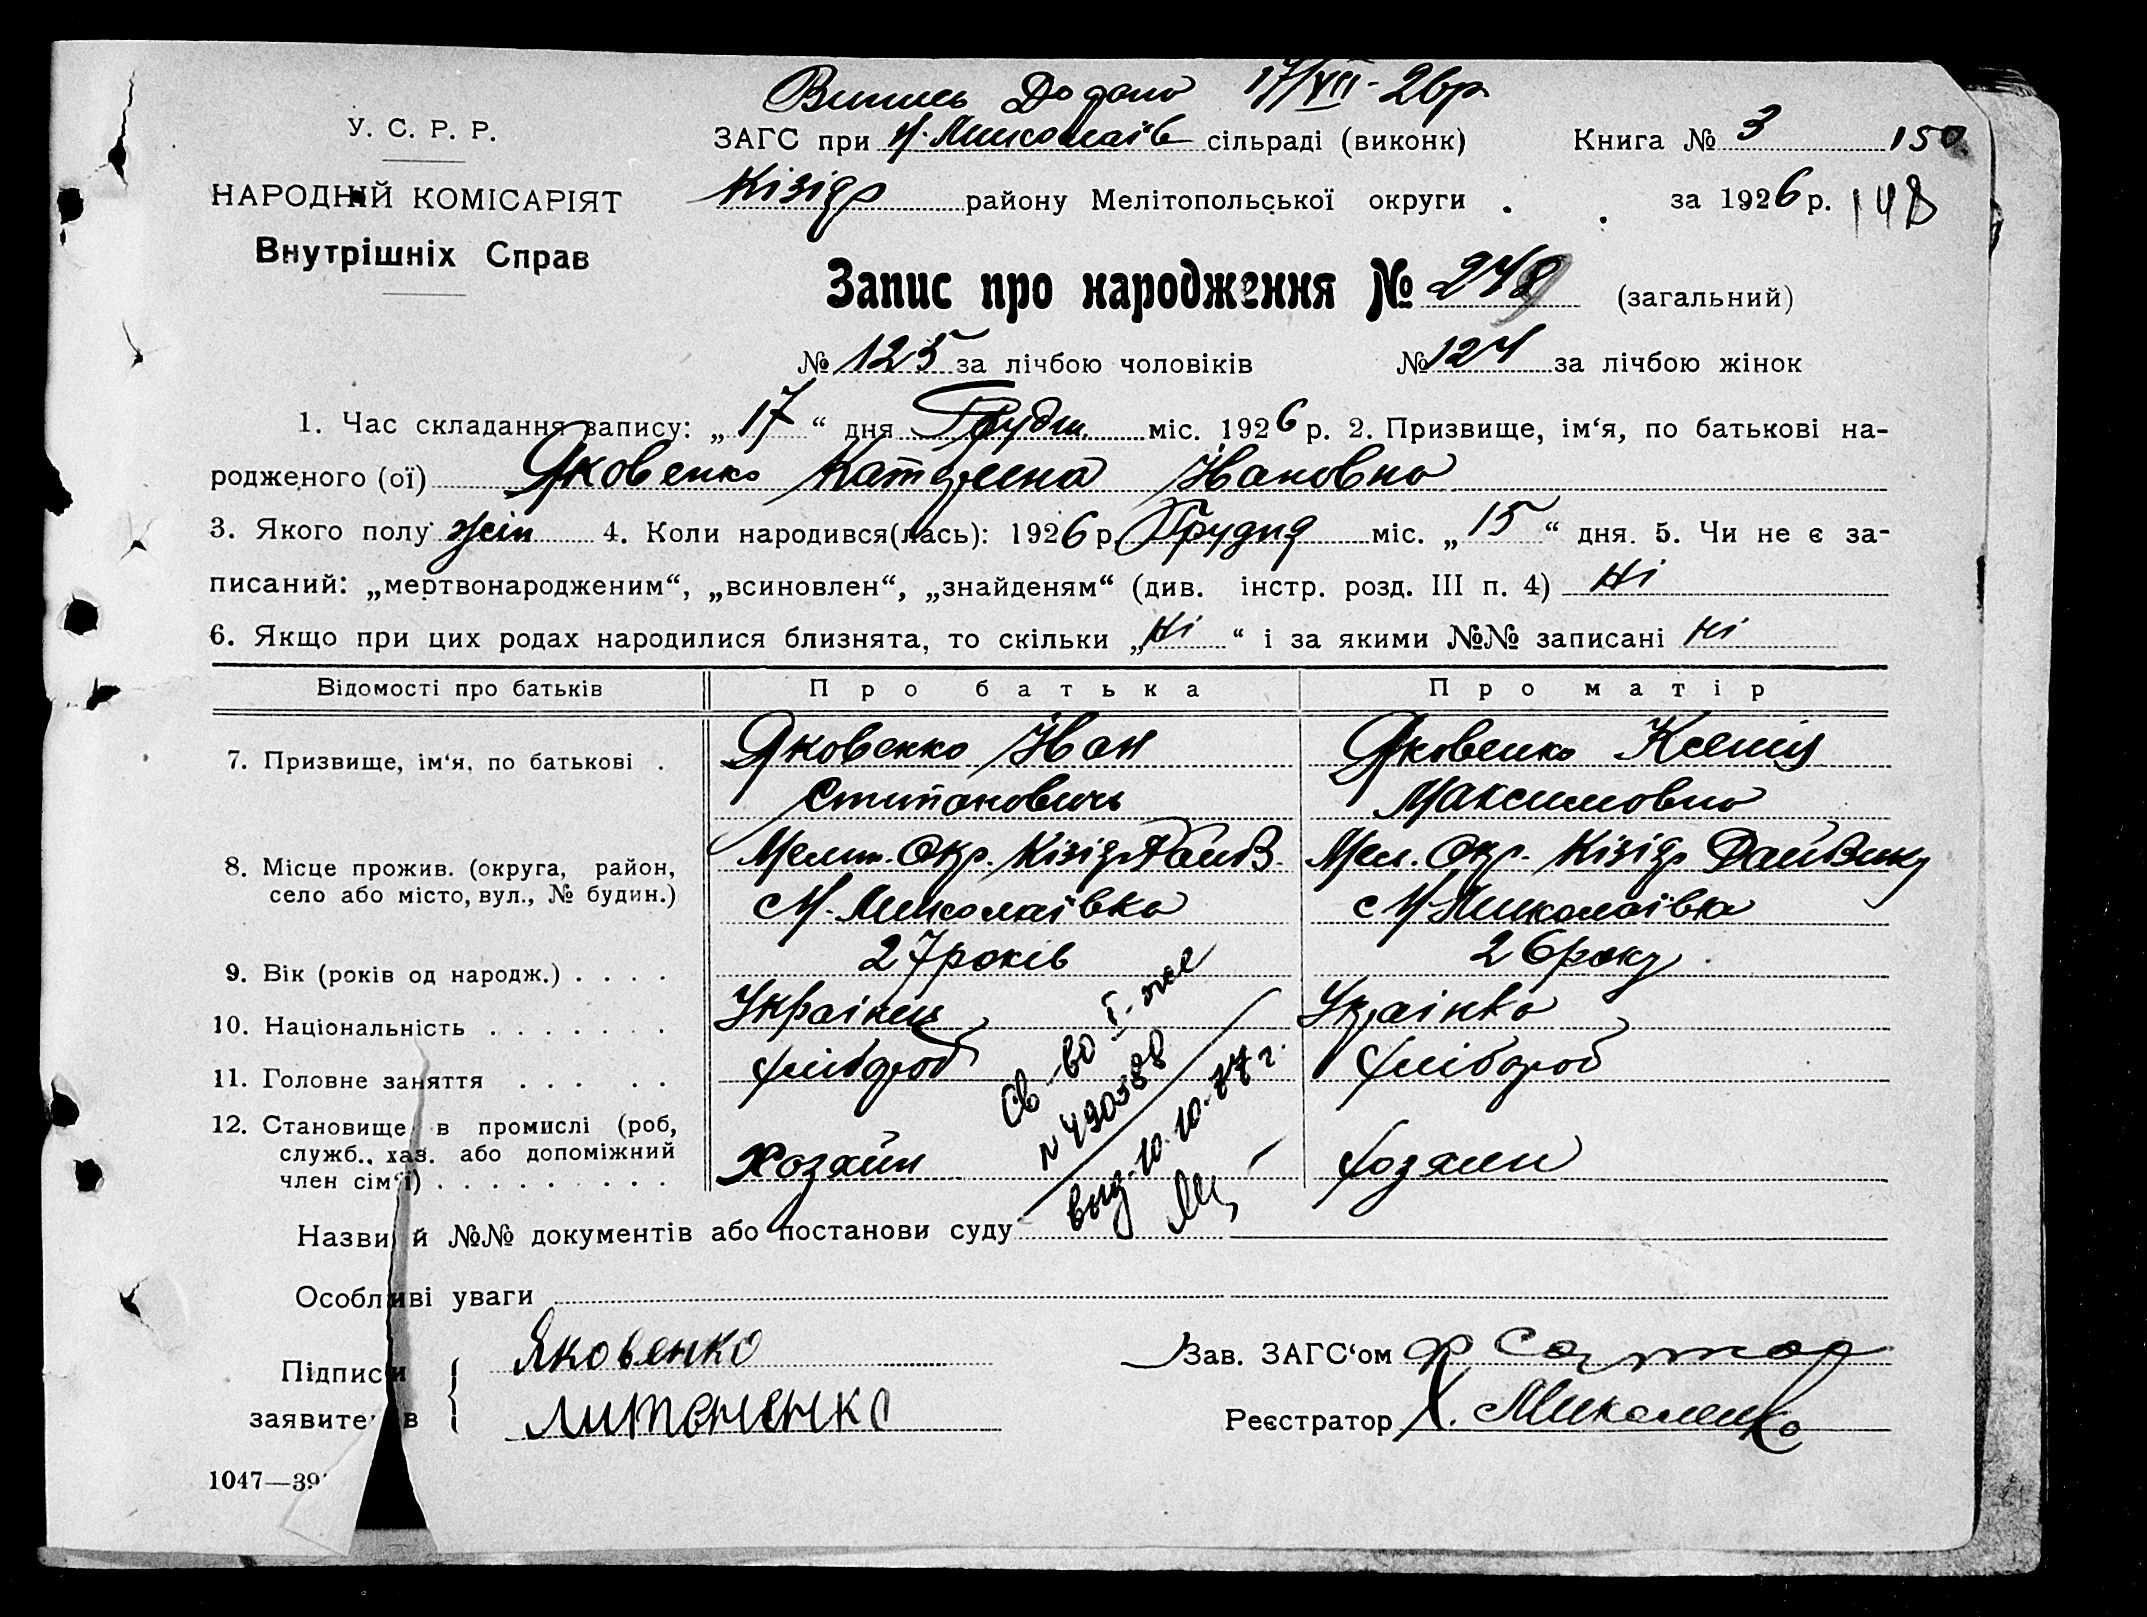 Випись Додано 17/VII-26р
У. С. Р. Р.
НАРОДНІЙ КОМІСАРІЯТ
Внутрішніх Справ
ЗАГС при Н. Миколаїв сільраді (виконк) Книга № 3 150
Кізідр району Мелітопольської округи за 1926 р. 148
Запис про народження № 249 (загальний)
№ 125 за лічбою чоловіків № 124 за лічбою жінок
1. Час складання запису: „17“ дня Грудн. міс. 1926 р. 2. Призвище, ім‘я, по батькові на-
родженого (ої) Яковенко Катерина Івановна
3. Якого полу жін 4. Коли народився(лась): 1926 р. Грудня міс. „15“ дня. 5. Чи не є за-
писаний: „мертвонародженим“, „всиновлен“, „знайденям“ (див. інстр. розд. III п. 4) Ні
6. Якщо при цих родах народилися близнята, то скільки „Ні“ і за якими №№ записані Ні
Відомості про батьків Про батька Про матір
7. Призвище, ім‘я, по батькові . Яковенко Іван Яковенко Ксенія
Степановичь Максимовна
8. Місце прожив. (округа, район, Меліт. Окр. Кізідр Мел. Окр. Кізідр
село або місто, вул., № будин.) с Н. Миколаівка с Н Миколаівка
9. Вік (років од народж.) . . . . 27 років 26 року
10. Національність . . . . . . . Українець Українка
11. Головне заняття . . . . . хлібороб хлібороб
12. Становище в промислі (роб,
служб., хаз. або допоміжний Хозяин хозяин
член сім‘ї) . . . . . . . . .
Св-во I-
N 490588
выд. 10.10.77 г.
Назви й №№ документів або постанови суду
Особливі уваги
Підписи Яковенко Зав. ЗАГС‘ом
заявителів Литоненко Реєстратор Х. Миколенко
1047—39